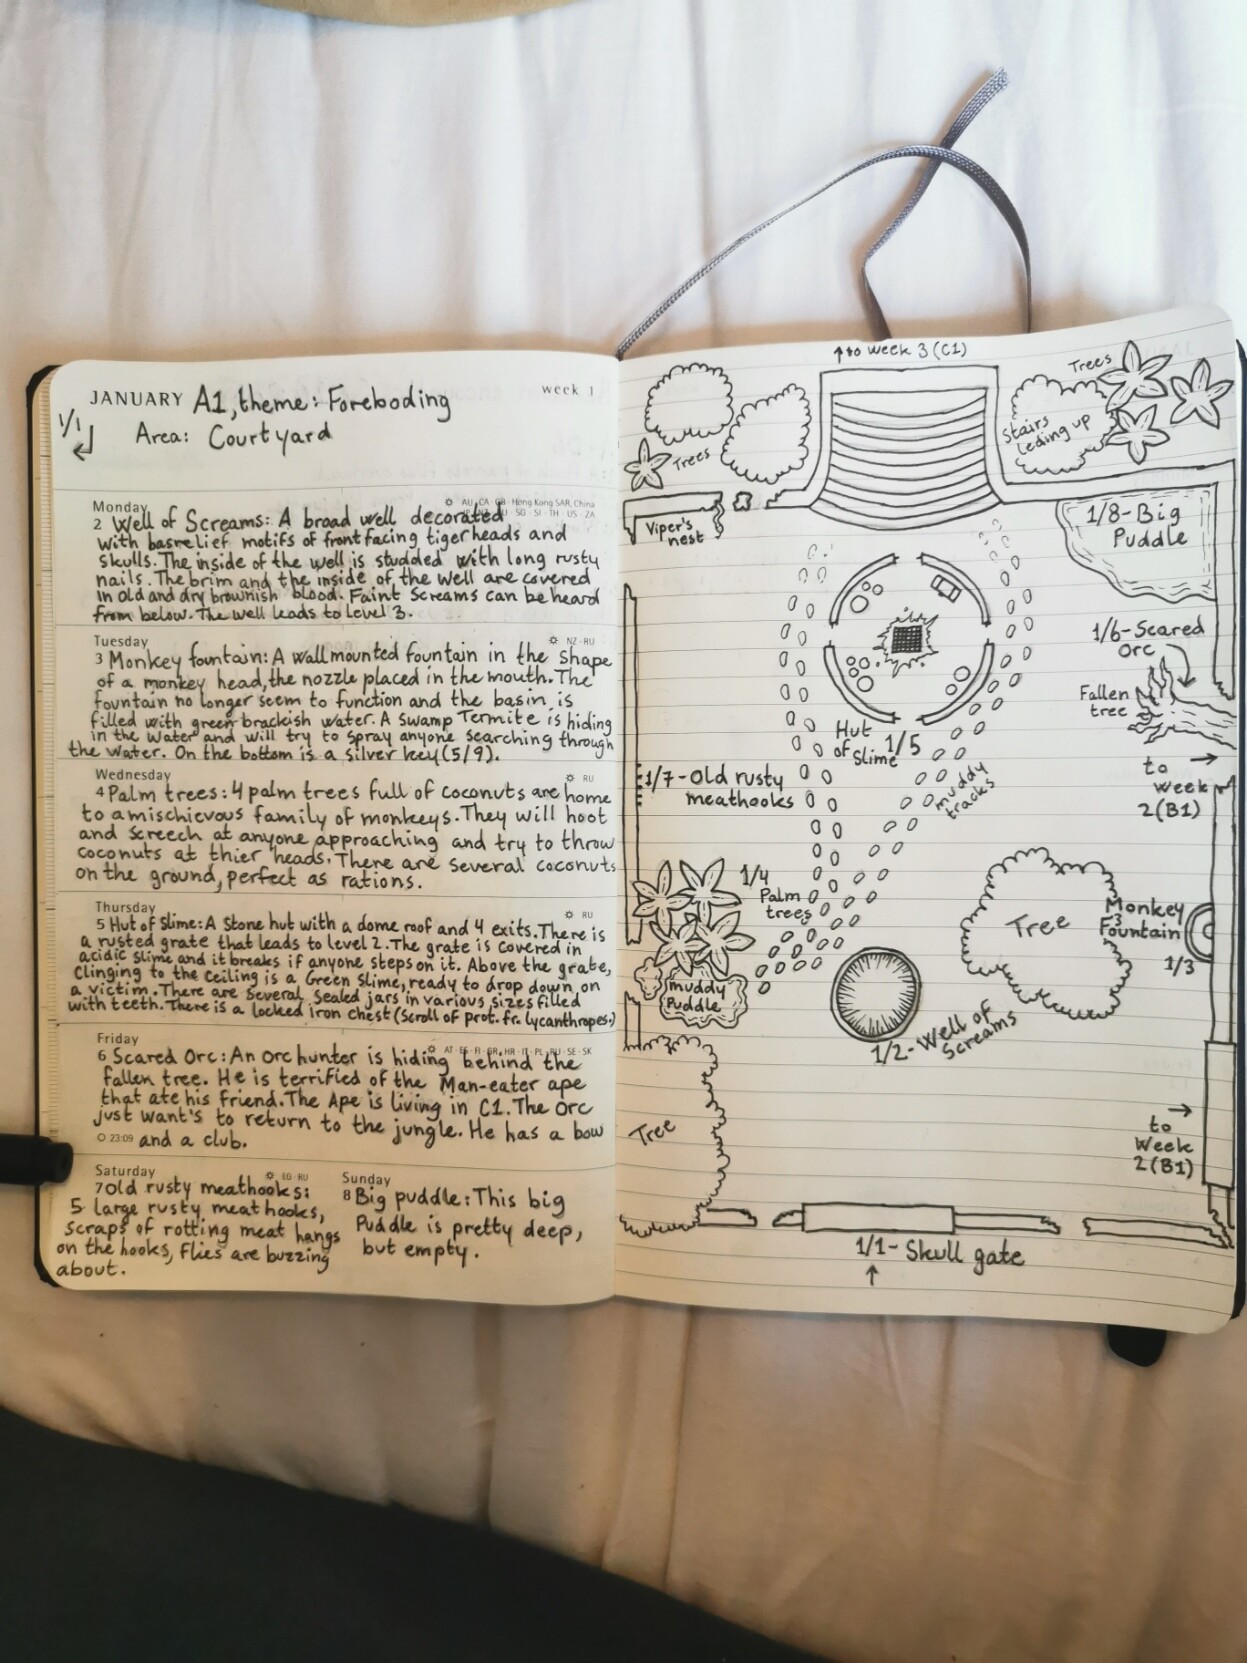 JANUARY A1, theme: Foreboding
week 1
1/1
Area: Courtyard
Monday
AU · CA · GB · Hong Kong SAR, China
SG · SI · TH · US · ZA
2 Well of Screams: A broad well decorated
with basrelief motifs of front facing tiger heads and
skulls. The inside of the well is studded with long rusty
nails. The brim and the inside of the well are covered
in old and dry brownish blood. Faint Screams can be heard
from below. The well leads to level 3.
Tuesday
NZ · RU
3 Monkey fountain: A wall mounted fountain in the shape
of a monkey head, the nozzle placed in the mouth. The
fountain no longer seem to function and the basin is
filled with green brackish water. A Swamp Termite is hiding
in the water and will try to spray anyone searching through
the water. On the bottom is a silver key (5/9).
Wednesday
RU
4 Palm trees: 4 palm trees full of coconuts are home
to a mischievous family of monkeys. They will hoot
and screech at anyone approaching and try to throw
coconuts at thier heads. There are several coconuts
on the ground, perfect as rations.
Thursday
RU
5 Hut of Slime: A Stone hut with a dome roof and 4 exits. There is
a rusted grate that leads to level 2. The grate is covered in
acidic slime and it breaks if anyone steps on it. Above the grate,
clinging to the ceiling is a Green Slime, ready to drop down on
a victim. There are several sealed jars in various sizes filled
with teeth. There is a locked iron chest (Scroll of prot. fr. lycanthropes.)
Friday
AT · ES · FI · GR · HR · IT · PL · RU · SE · SK
6 Scared Orc: An Orc hunter is hiding behind the
fallen tree. He is terrified of the Man-eater ape
that ate his friend. The Ape is living in C1. The Orc
just want's to return to the jungle. He has a bow
23:09 and a club.
Saturday
EG · RU
7 Old rusty meathooks:
5 large rusty meathooks,
scraps of rotting meat hangs
on the hooks, flies are buzzing
about.
Sunday
8 Big puddle: This big
Puddle is pretty deep,
but empty.
↑ to week 3 (C1)
Trees
Stairs
leding up
Trees
Viper's
nest
1/8 - Big
Puddle
1/6 - Scared
Orc
Fallen
tree
Hut
of
Slime 1/5
to →
Week
2 (B1)
1/7 - Old rusty
meathooks
muddy
tracks
1/4
Palm
trees
Tree
Monkey
Fountain
1/3
muddy
Puddle
1/2 - Well of
Screams
Tree
→
to
Week
2 (B1)
1/1 - Skull gate
↑